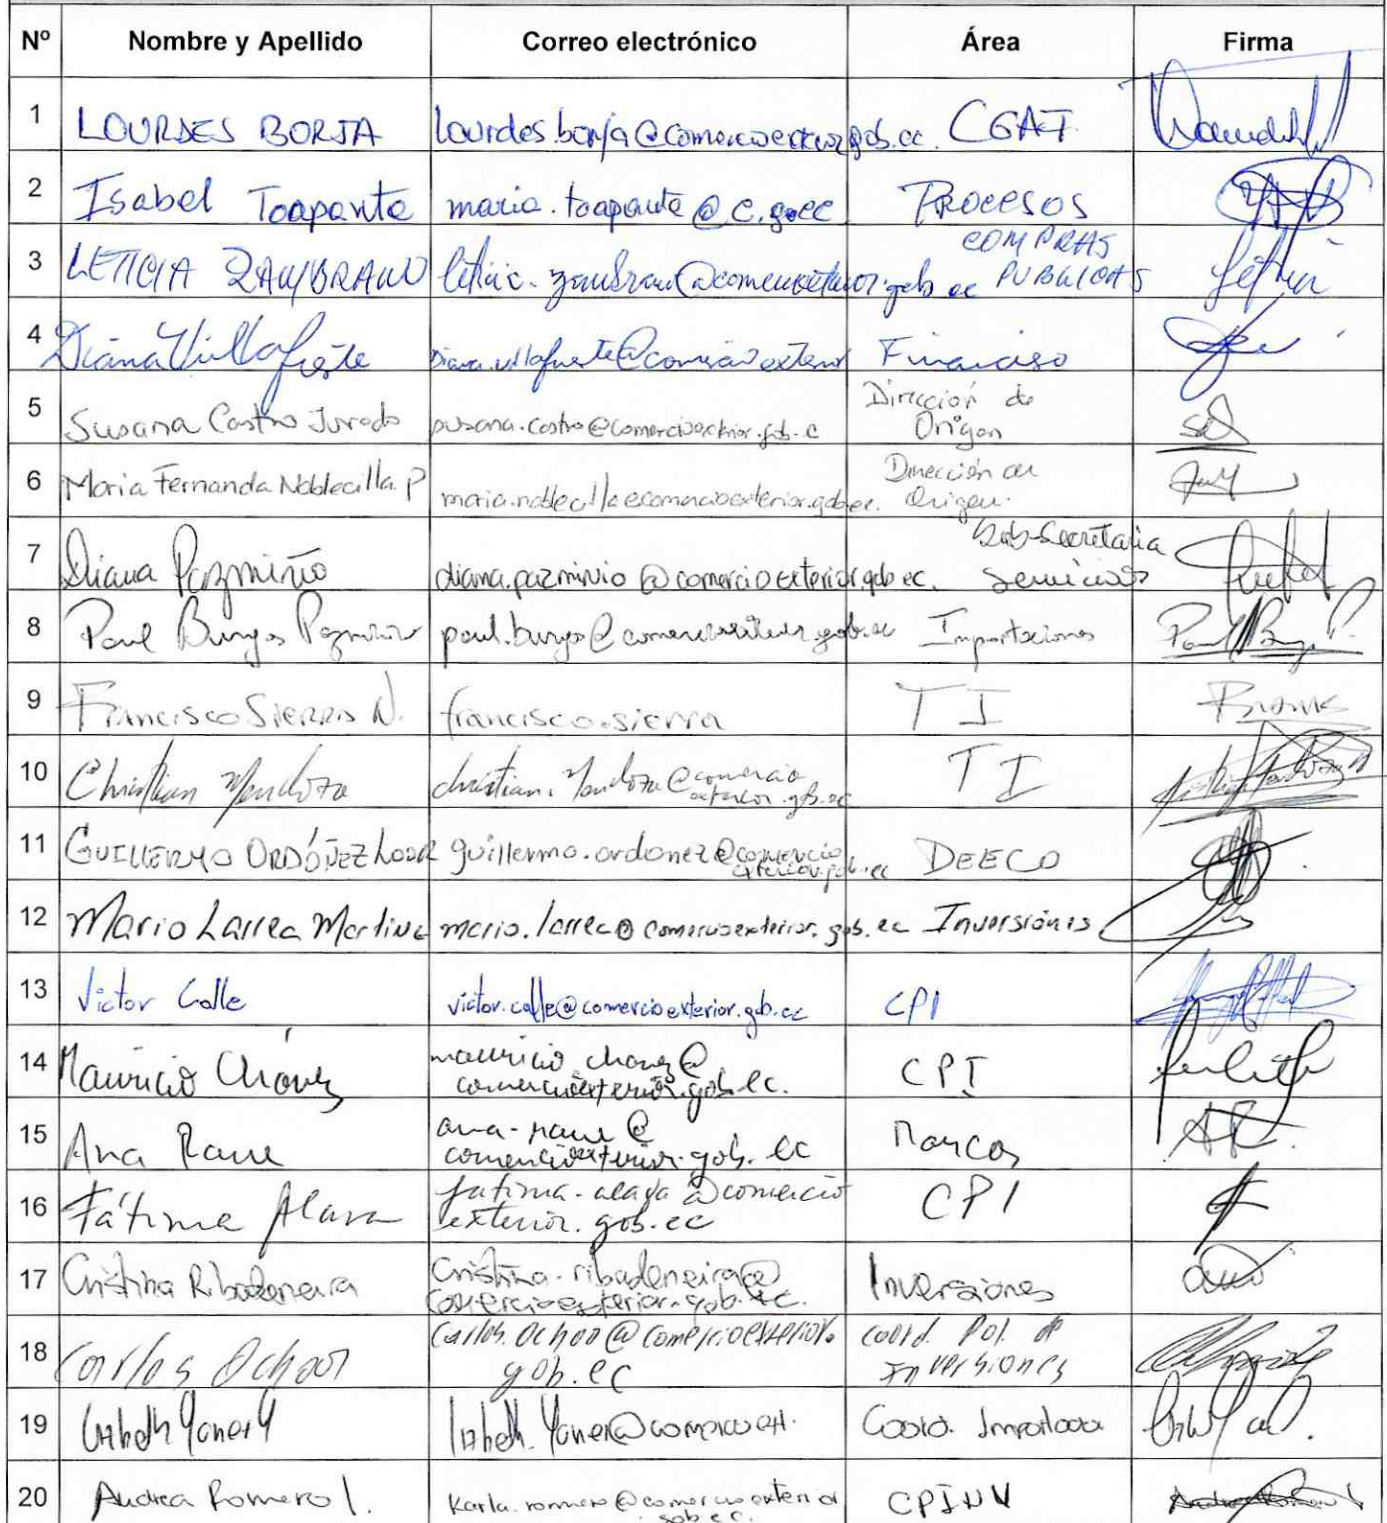 Nº Nombre y Apellido Correo electrónico Área Firma
1 LOURDES BORJA lourdes.borja@comercioexterior.gob.ec CGAF
2 Isabel Toapanta maria.toapanta@c.g.ec Procesos
3 LETICIA ZAMBRANO leticia.zambrano@comercioexterior.gob.ec COMPRAS PUBLICAS
4 Diana Villafuerte Diana.villafuerte@comercio exterior Financiero
5 Susana Castro Jurado susana.castro@comercioexterior.gob.e Dirección de Origen
6 Maria Fernanda Noblecilla P maria.noblecilla@comercioexterior.gob.ec. Dirección de Origen.
7 Diana Pazmiño diana.pazminio@comercioexterior.gob.ec. Sub-Secretaria Servicios
8 Paul Burgos Pazmiño paul.burgos@comercioexterior.gob.ec Importaciones
9 FRANCISCO SIERRA N. francisco.sierra TI Frank
10 Christian Mendoza christian.Mendoza@comercio exterior.gob.ec TI
11 GUILLERMO ORDÓÑEZ guillermo.ordonez@comercio exterior.gob.ec DEECO
12 Mario Larrea Martinez mario.larrea@comercioexterior.gob.ec Inversiones
13 Victor Calle victor.calle@comercioexterior.gob.ec CPI
14 Mauricio Chávez mauricio.chavez@ comercioexterior.gob.ec. CPI
15 Ana ana- @ comercioexterior.gob.ec AR.
16 Fátima Alava fatima-alava@comercio exterior.gob.ec CPI
17 Cristina Ribadeneira Cristina.ribadeneira@ comercioexterior.gob.ec. Inversiones
18 Carlos Ochoa Carlos.Ochoa@comercioexterior. gob.ec Coord. Pol. de Inversiones
19 Lizbeth Yanez Y Lizbeth.Yanez@comercio ext. Coord.
20 Andrea Romero l. Karla.romero@comercioexterior gob.ec. CPINV